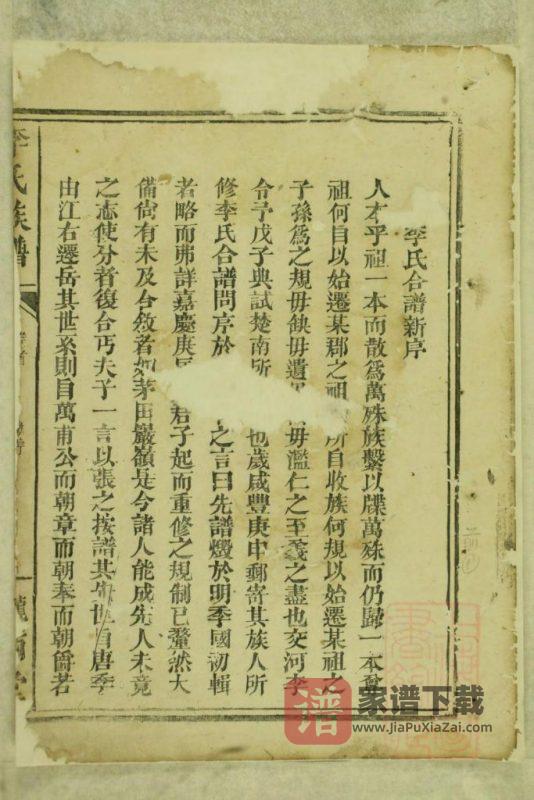 李氏合譜新序
人才乎祖一本而散爲萬殊族繫以牒萬殊而仍歸一本
祖何自以始遷某郡之祖 所自收族何規以始遷某祖之
子孫爲之規毋缺毋遺 毋濫仁之至義之盡也交河李
令予戊子典試楚南所 也歲咸豐庚申郵寄其族人所
修李氏合譜問序於 之言曰先譜燬於明季國初輯
者略而弗詳嘉慶庚 君子起而重修之規制已釐然大
備尙有未及合敘者如茅田嚴嶺是今諸人能成先人未竟
之志使分者復合丐夫子一言以張之按譜其 世自唐季
由江右遷岳其世系則自萬甫公而朝章而朝奉而朝爵若
李氏族譜
卷首
譜
家谱下载
www.jiaPuXiaZai.com